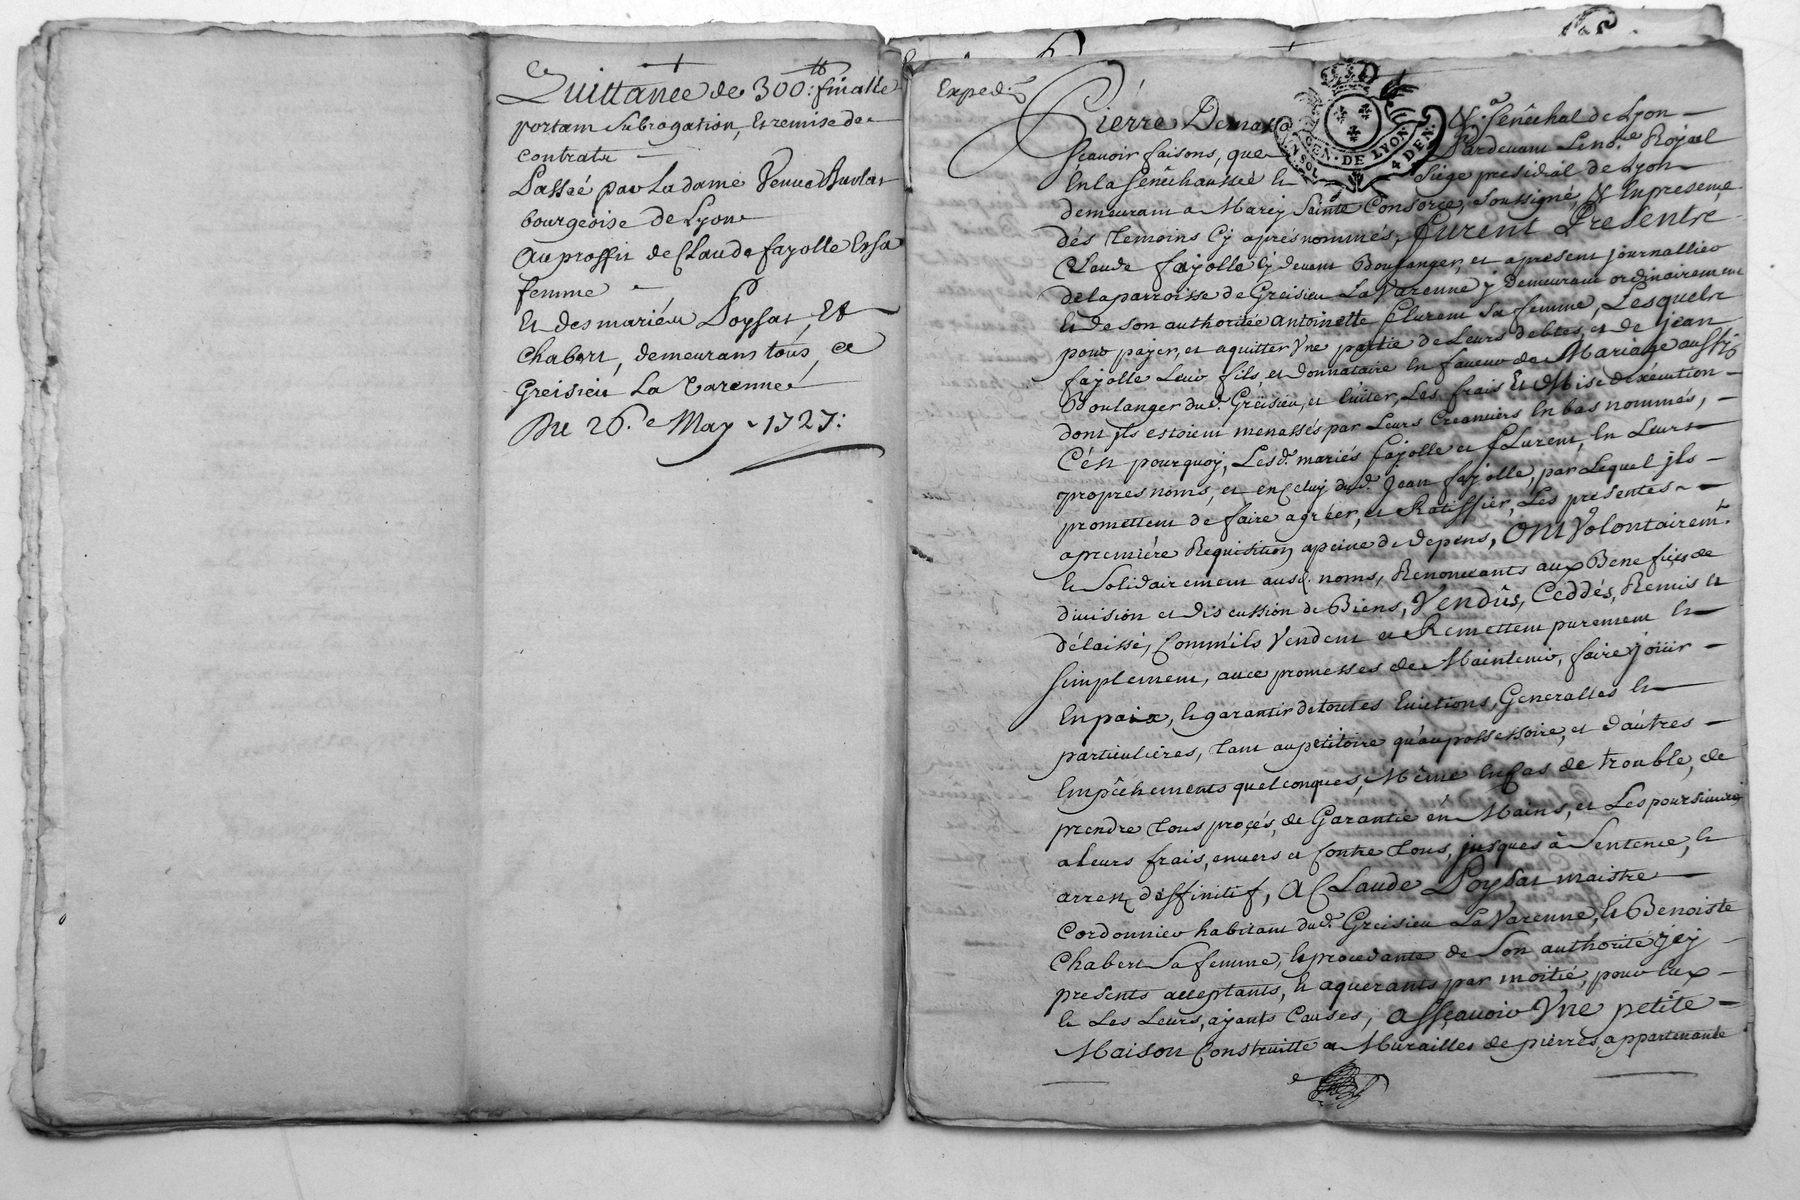 Quittance de 300.tt finalle
portam Subrogation, Et remise de
contrats
Passeé par La dame Veuve
bourgeoise de Lyon
Au proffit de Claude fayolle Et sa
femme
Et des mariéu Poysat, Et
Chabert, demeurans tous, a
Greisieu La Varenneé
Du 26.e May 1727:
Exped.on
Pierre N.a Sénêchal de Lyon
Scavoir faisons, que Pardevant Le no.re Royal
En la Sénêchaussée Et Siége présidial de Lyon
demeurant a Marcy Sainte Consorce, Soussigné, & En presence
dés temoins Cy aprés nommés, furent Presents
Claude fayolle Cy devant Boulanger, et apresent journallier
de la parroisse de Greisieu La Varenne y demeurant ordinairement
Et de son authoritée Antoinette flurent Sa femme, Lesquels
pour payer, et aquitter Vne partie de Leurs debtes, et de Jean
fayolle Leur fils, et donnataire En faveur de Mariage aussy
Boulanger dud. Greisieu, et Eviter, Les frais Et Mise d'exécution
dont jls estoient menassés par Leurs Creantiers En bas nommés,
C'ést pourquoy, Lesd. mariés fayolle et flurent, En Leurs
propres noms, et en Celuy dud. Jean fayolle, par Lequel jls
promettent de faire agréer, et Ratiffier, Les presentes
a premiére Requisition a peine de depens, Ont Volontairem.t
Et Solidairement ausd. noms, Renoncants aux Benefices de
division et discussion de Biens, Vendûs, Ceddés, Remis Et
délaissé, Comm'ils Vendent et Remettent purement Et
Simplement, avec promesses de Maintenir, faire joüir
En paix, Et garantir de toutes Evictions, Generalles Et
particuliéres, tant au petitoire qu'au possessoire, et d'autres
Empêchements quelconques, Même En Cas de trouble, de
prendre tous procés, de Garantie én Mains, et Les poursuivre
a Leurs frais, envers et Contre tous, jusques à Sentence, Et
arrest déffinitif, A Claude Poysat maistre
Cordonnier habitant dud. Greisieu La Varenne, Et Benoiste
Chabert Sa femme, Et procedante de Son authorité jcy
presents acceptants, Et aquerants par moitié, pour Eux
Et Les Leurs, ayants Causes, Asscavoir Vne petite
Maison Construitte a Murailles de pierres, appartenante